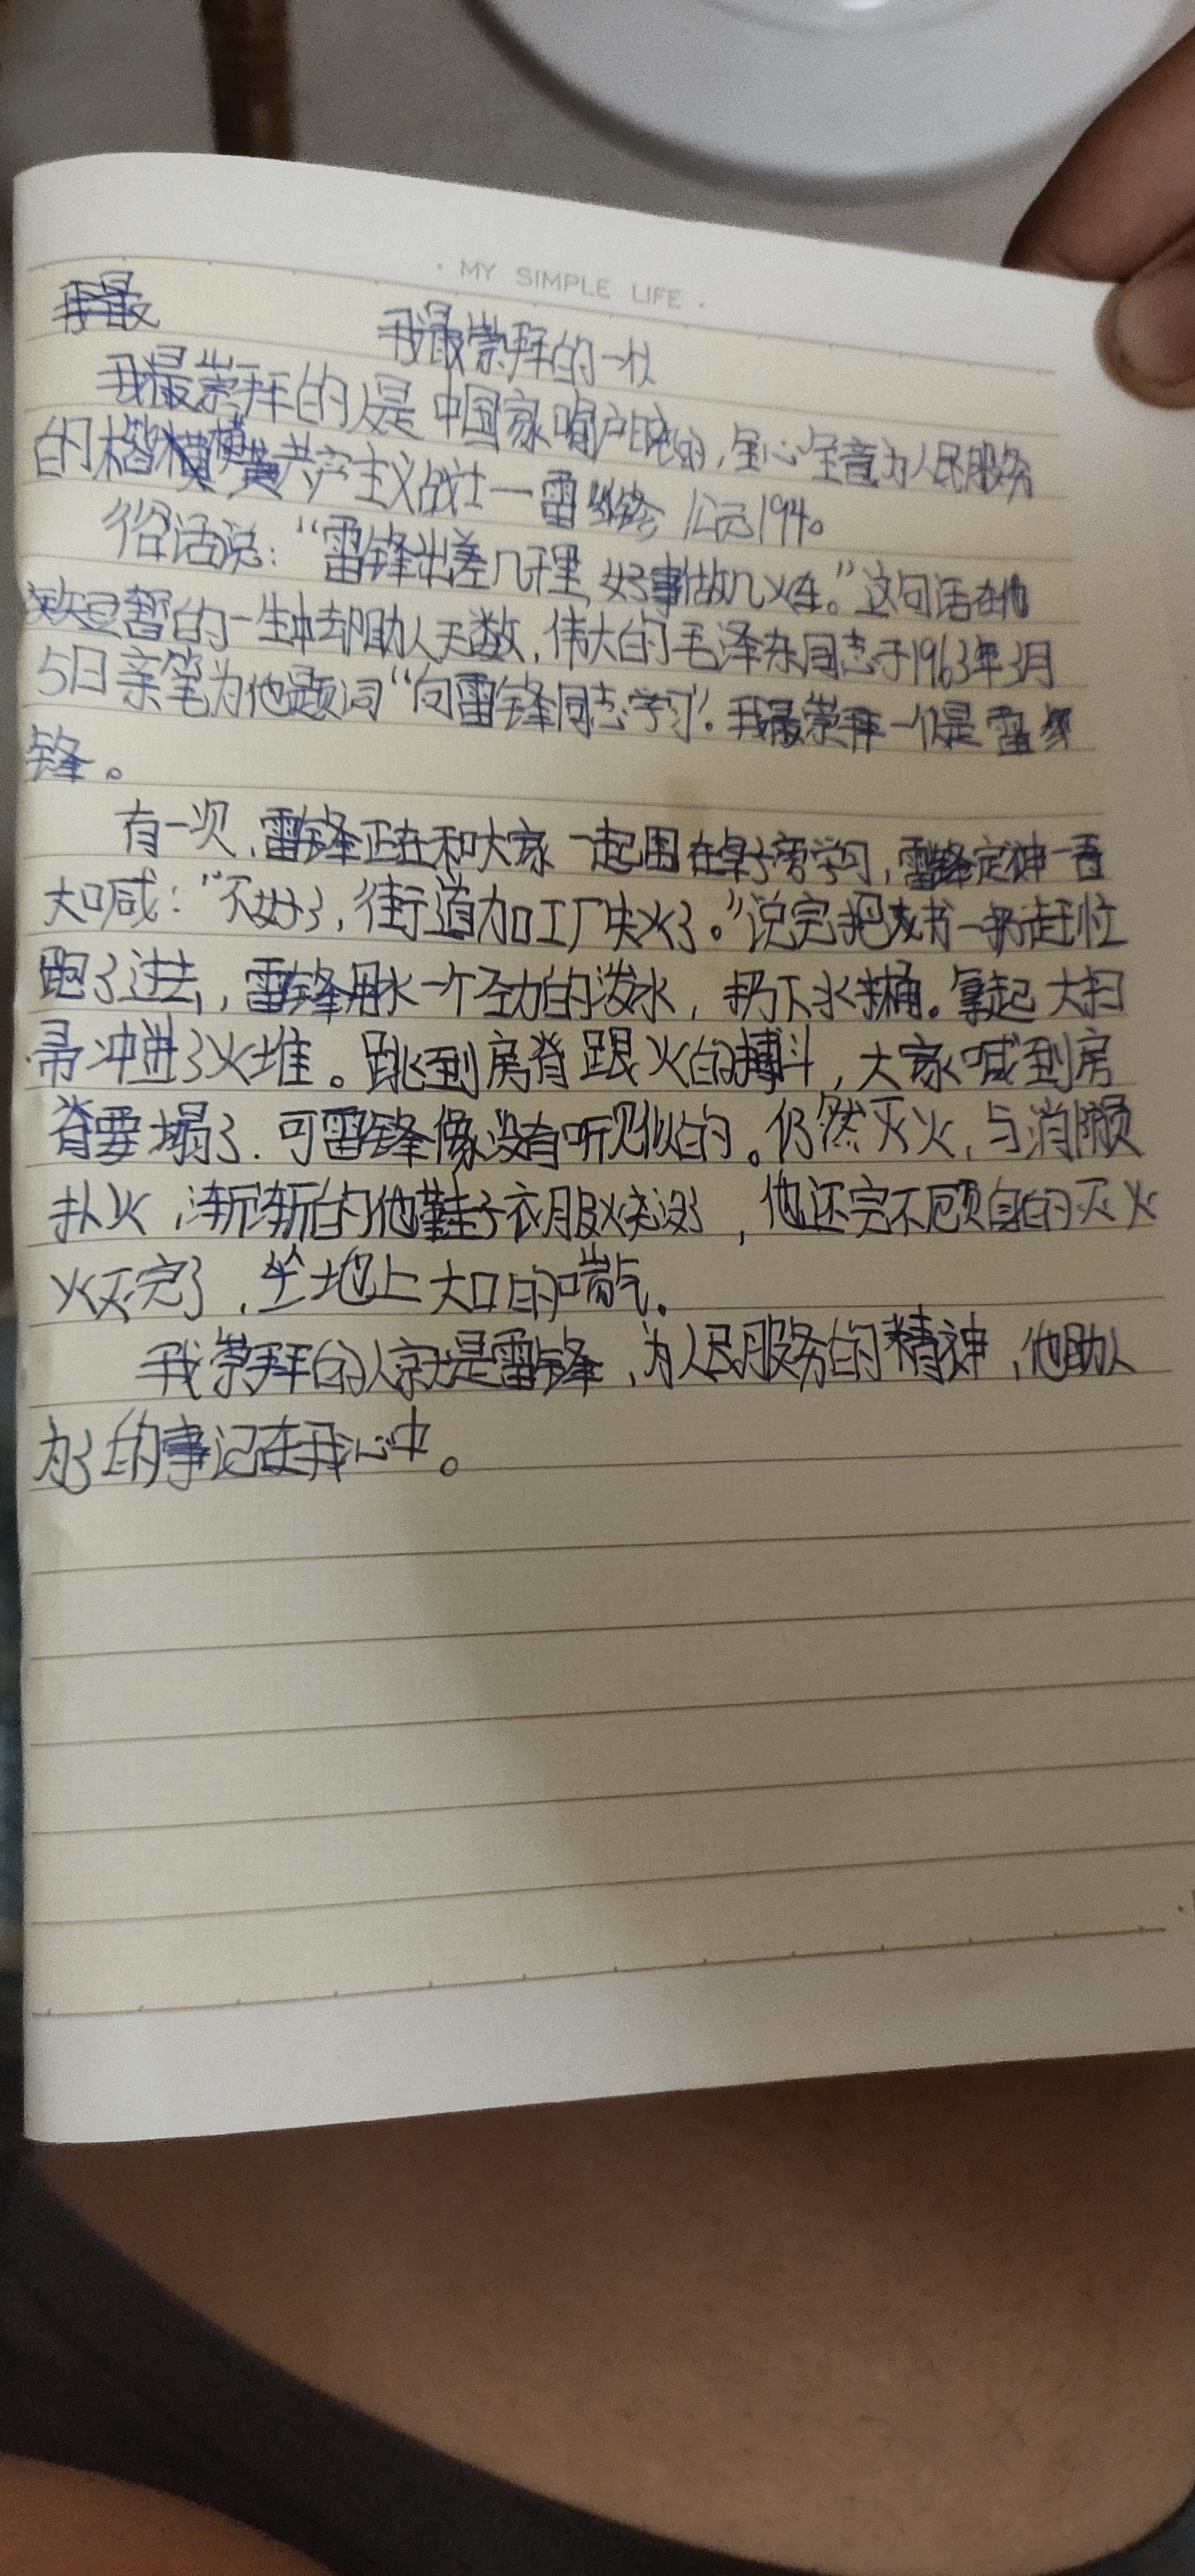 · MY SIMPLE LIFE ·
我最崇拜的一个人
我最崇拜的人是中国家喻户晓的,全心全意为人民服务
的楷模共产主义战士一雷锋 公元1940
俗话说:“雷锋出差几千里,好事做几火车。”这句话在他
短暂的一生中却助人无数,伟大的毛泽东同志于1963年3月
5日亲笔为他题词“向雷锋同志学习”.我最崇拜一个人是雷
锋。
有一次,雷锋正在和大家一起围在桌子旁学习,雷锋定神一看
大喊:“不好了,街道加工厂失火了。”说完把书一扔赶忙
跑了进去,雷锋用水一个劲的泼水,扔下水桶。拿起大扫
帚冲进了火堆。跳到房脊跟火的搏斗,大家喊到房
脊要塌了.可雷锋像没有听见似的。仍然灭火,与消防员
扑火,渐渐的他鞋子衣服火烧没了,他还完不顾自的灭火
火灭完了,坐地上大口的喘气.
我崇拜的人就是雷锋,为人民服务的精神,他助人
为了的事记在我心中。